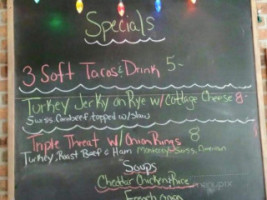 Specials
3 Soft Tacos & Drink 5-
Turkey Jerky on Rye w/ Cottage Cheese 8-
Swiss topped w/ Slaw
Triple Threat w/ Onion Rings 8
Turkey, Roast Beef & Ham
Soups
Cheddar Chicken Rice
French Onion